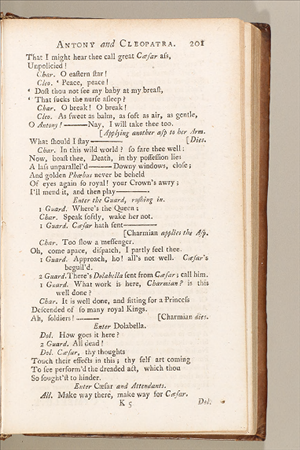 ANTONY and CLEOPATRA. 201
That I might hear thee call great Cæſar aſs,
Unpolicied!
Char. O eaſtern ſtar!
Cleo. ‘ Peace, peace!
‘ Doſt thou not ſee my baby at my breaſt,
‘ That ſucks the nurſe aſleep?
Char. O break! O break!
Cleo. As ſweet as balm, as ſoft as air, as gentle,
O Antony! ——Nay, I will take thee too.
[Applying another aſp to her Arm.
What ſhould I ſtay—— [Dies.
Char. In this wild world? ſo fare thee well:
Now, boaſt thee, Death, in thy poſſeſſion lies
A laſs unparallel'd——Downy windows, cloſe;
And golden Phœbus never be beheld
Of eyes again ſo royal! your Crown's awry;
I'll mend it, and then play——
Enter the Guard, ruſhing in.
1 Guard. Where's the Queen?
Char. Speak ſoftly, wake her not.
1 Guard. Cæſar hath ſent——
[Charmian applies the Aſp.
Char. Too ſlow a meſſenger.
Oh, come apace, diſpatch, I partly feel thee.
1 Guard. Approach, ho! all's not well. Cæſar's
beguil'd.
2 Guard. There's Dolabella ſent from Cæſar; call him.
1 Guard. What work is here, Charmian? is this
well done?
Char. It is well done, and fitting for a Princeſs
Deſcended of ſo many royal Kings.
Ah, ſoldiers! —— [Charmian dies.
Enter Dolabella.
Dol. How goes it here?
2 Guard. All dead!
Dol. Cæſar, thy thoughts
Touch their effects in this; thy ſelf art coming
To ſee perform'd the dreaded act, which thou
So ſought'ſt to hinder.
Enter Cæſar and Attendants.
All. Make way there, make way for Cæſar.
K 5 Dol.